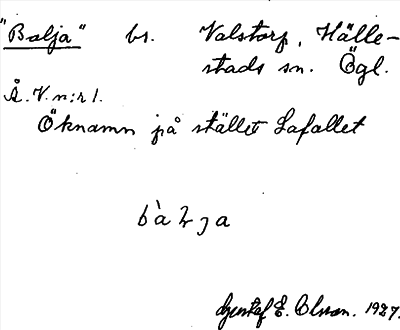 "Balja" bs. Valstorp, Hälle-
stads sn. Ögl.
Å.V.n:r 1.
Öknamn på stället Lafallet
Gustaf E. Olsson. 1927.